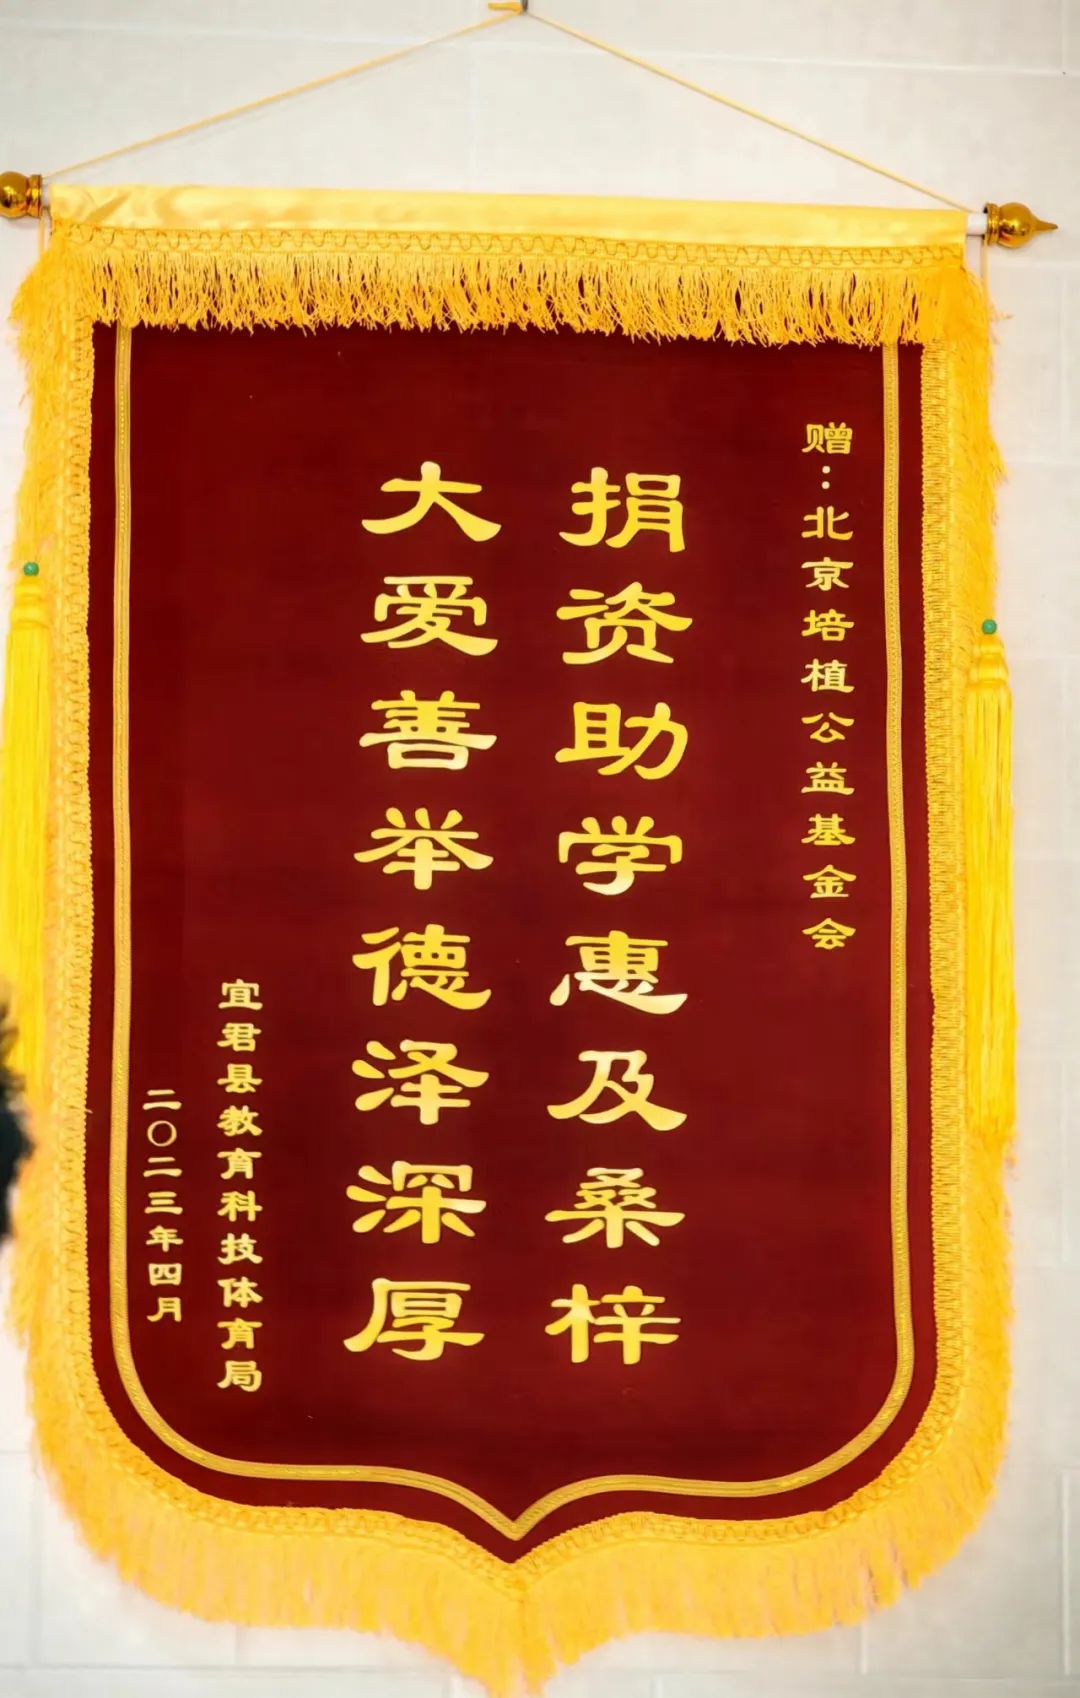 赠：北京培植公益基金会
捐资助学惠及桑梓
大爱善举德泽深厚
宜君县教育科技体育局
二〇二三年四月